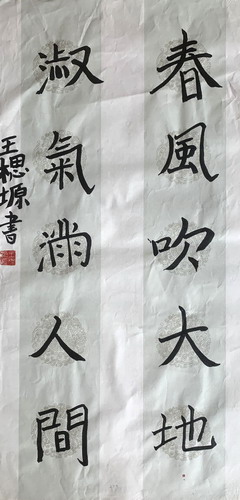 春風吹大地
淑氣滿人間
王楒塬書